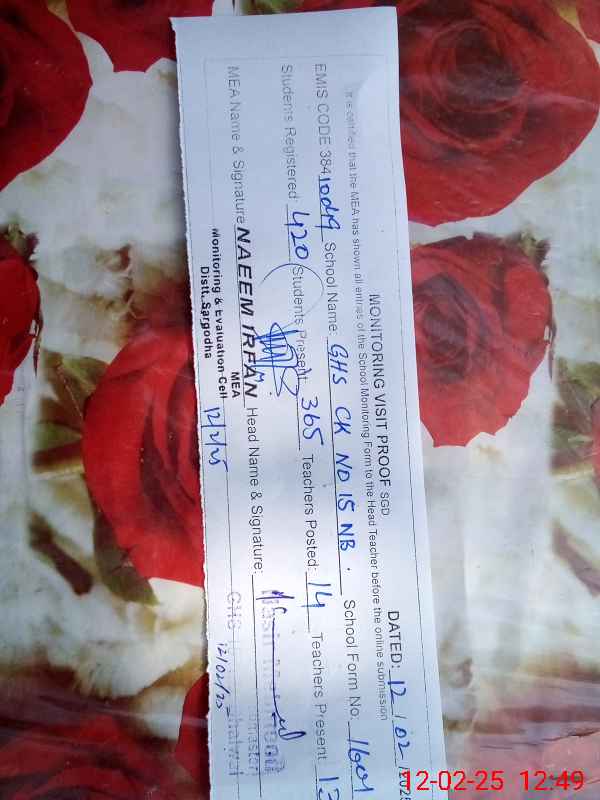 MONITORING VISIT PROOF SGD
DATED: 12/02/2025
It is certified that the MEA has shown all entries of the School Monitoring Form to the Head Teacher before the online submission
EMIS CODE 384 School Name: GHS CK NO 15 NB. School Form No: 1601
Students Registered: 420 Students Present: 365 Teachers Posted: 14 Teachers Present: 13
MEA Name & Signature NAEEM IRFAN Head Name & Signature:
MEA
Monitoring & Evaluation Cell
Distt. Sargodha
12/2/25
GHS
12/02/25
12-02-25 12:49